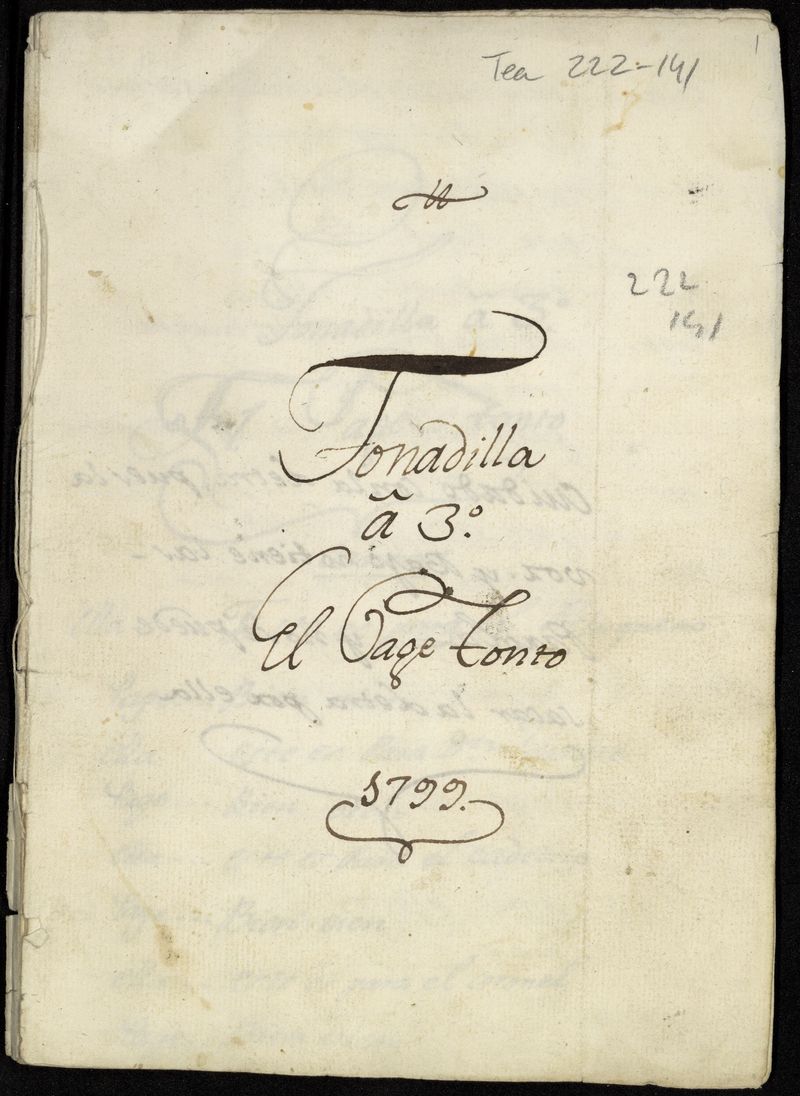 1
Tea 222-141
222
141
Tonadilla
â 3.º
El Page Tonto
1799.